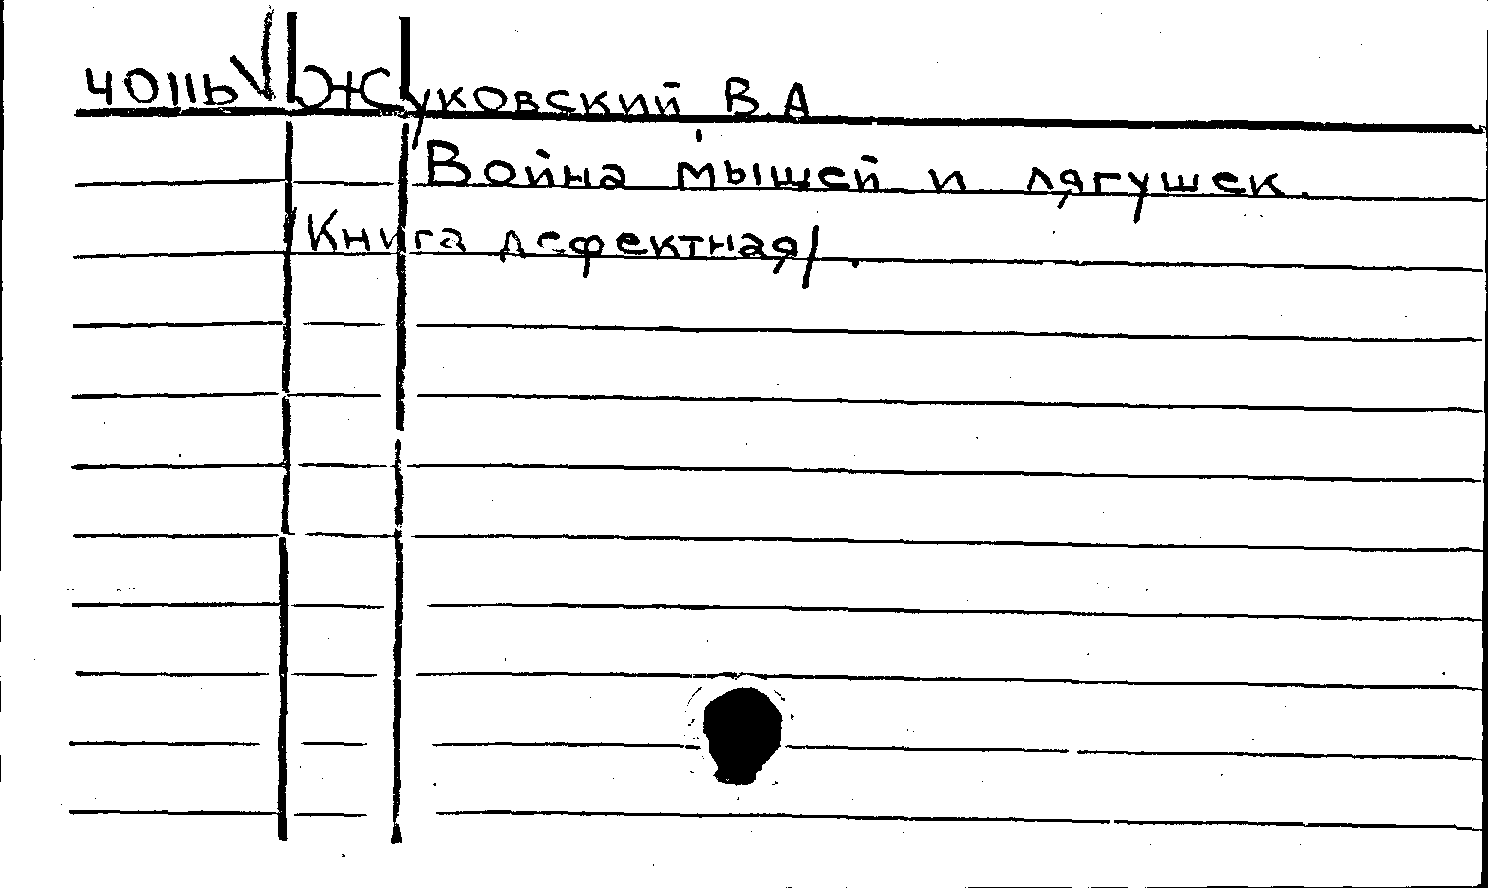 4011б Жуковский В.А
Война мышей и лягушек.
/Книга дефектная/.